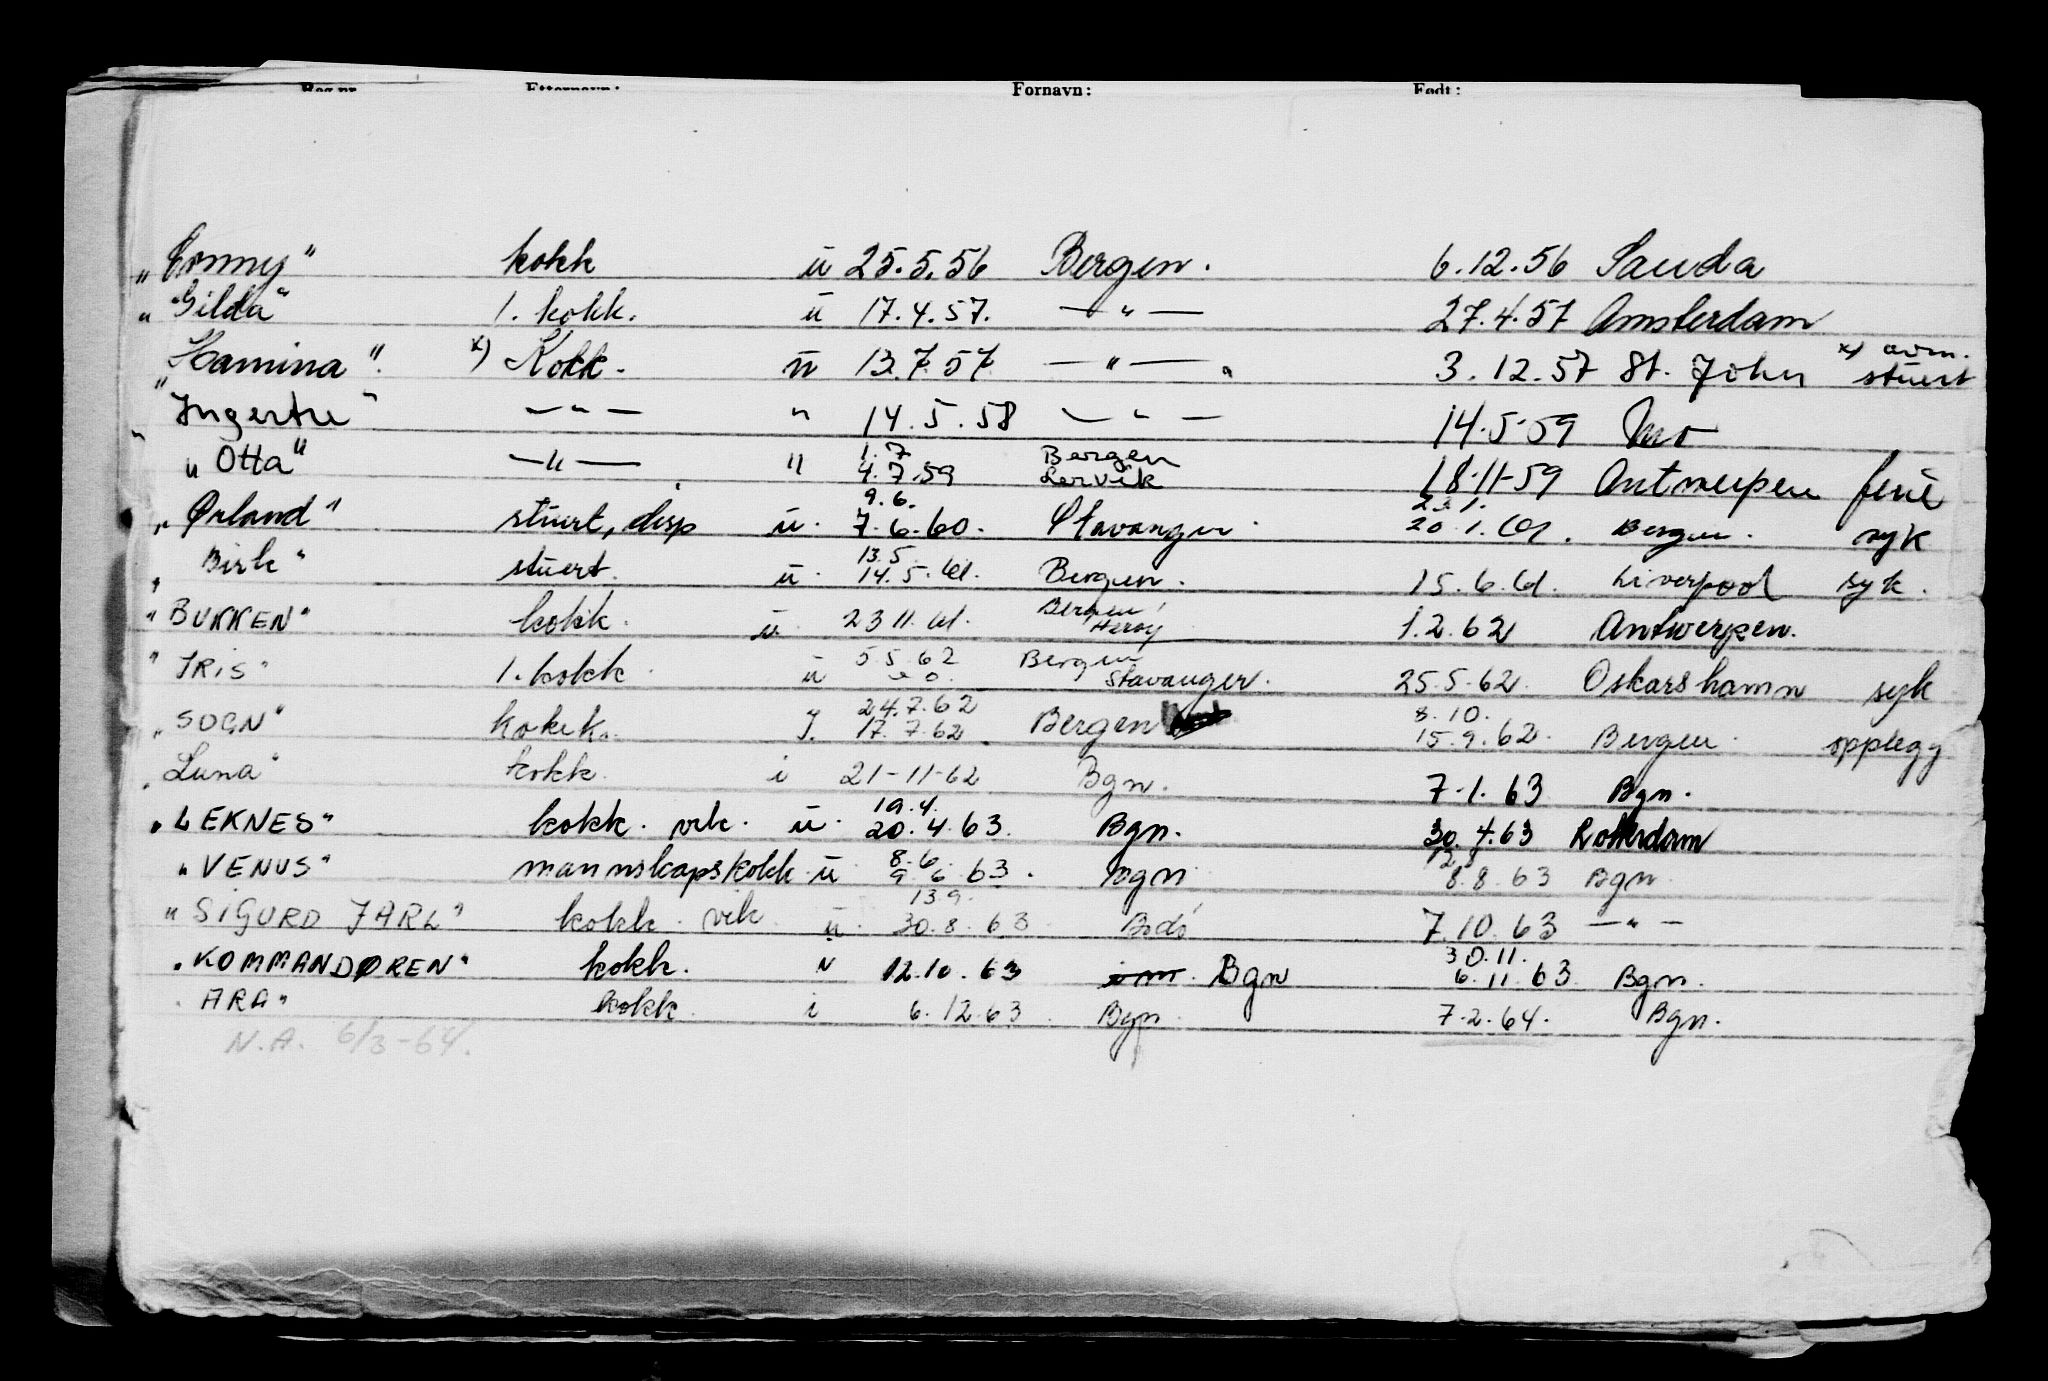 Reg.nr. Etternavn: Fornavn: Født:
„Ermy" kokk ü 25.5.56 Bergen. 6.12.56 Sauda
„Gilda" 1. kokk. ü 17.4.57. —"— 27.4.57 Amsterdam
„Hamina". x) Kokk. ü 13.7.57 —"— 3.12.57 St. John x) avm. stuert
„Ingertre" —"— " 14.5.58 —"— 14.5.59 Mo
„Otta" —"— " 1.7 4.7.59 Bergen Lervik 18-11-59 Antwerpen ferie
„Ørland" stuert, disp ü. 9.6. 7.6.60. Stavanger. 23.1. 20.1.61. Bergen. syk
„Birk" stuert. ü. 13.5. 14.5.61. Bergen. 15.6.61. Liverpool syk.
"BUKKEN" kokk. ü. 23.11.61. Bergen, Herøy 1.2.62 Antwerpen.
"IRIS" 1. kokk. ü 5.5.62 Bergen Stavanger. 25.5.62. Oskarshamn syk
„SOGN" kokk. i. 24.7.62 17.7.62. Bergen 8.10. 15.9.62. Bergen. opplegg
„Luna" kokk. i 21-11-62 Bgn. 7.1.63 Bgn.
„LEKNES" kokk. vik. ü. 19.4. 20.4.63. Bgn. 30.4.63 Rotterdam
„VENUS" mannskapskokk. ü. 8.6. 9.6.63. Bgn 12.8 8.8.63 Bgn.
"SIGURD JARL" kokk. vik. ü. 13.9. 30.8.63 Bodø 7.10.63 —"—
„KOMMANDØREN" kokk. " 12.10.63 Bgn 30.11. 6.11.63 Bgn.
„ARA" kokk. i 6.12.63. Bgn. 7.2.64. Bgn.
N.A. 6/3-64.